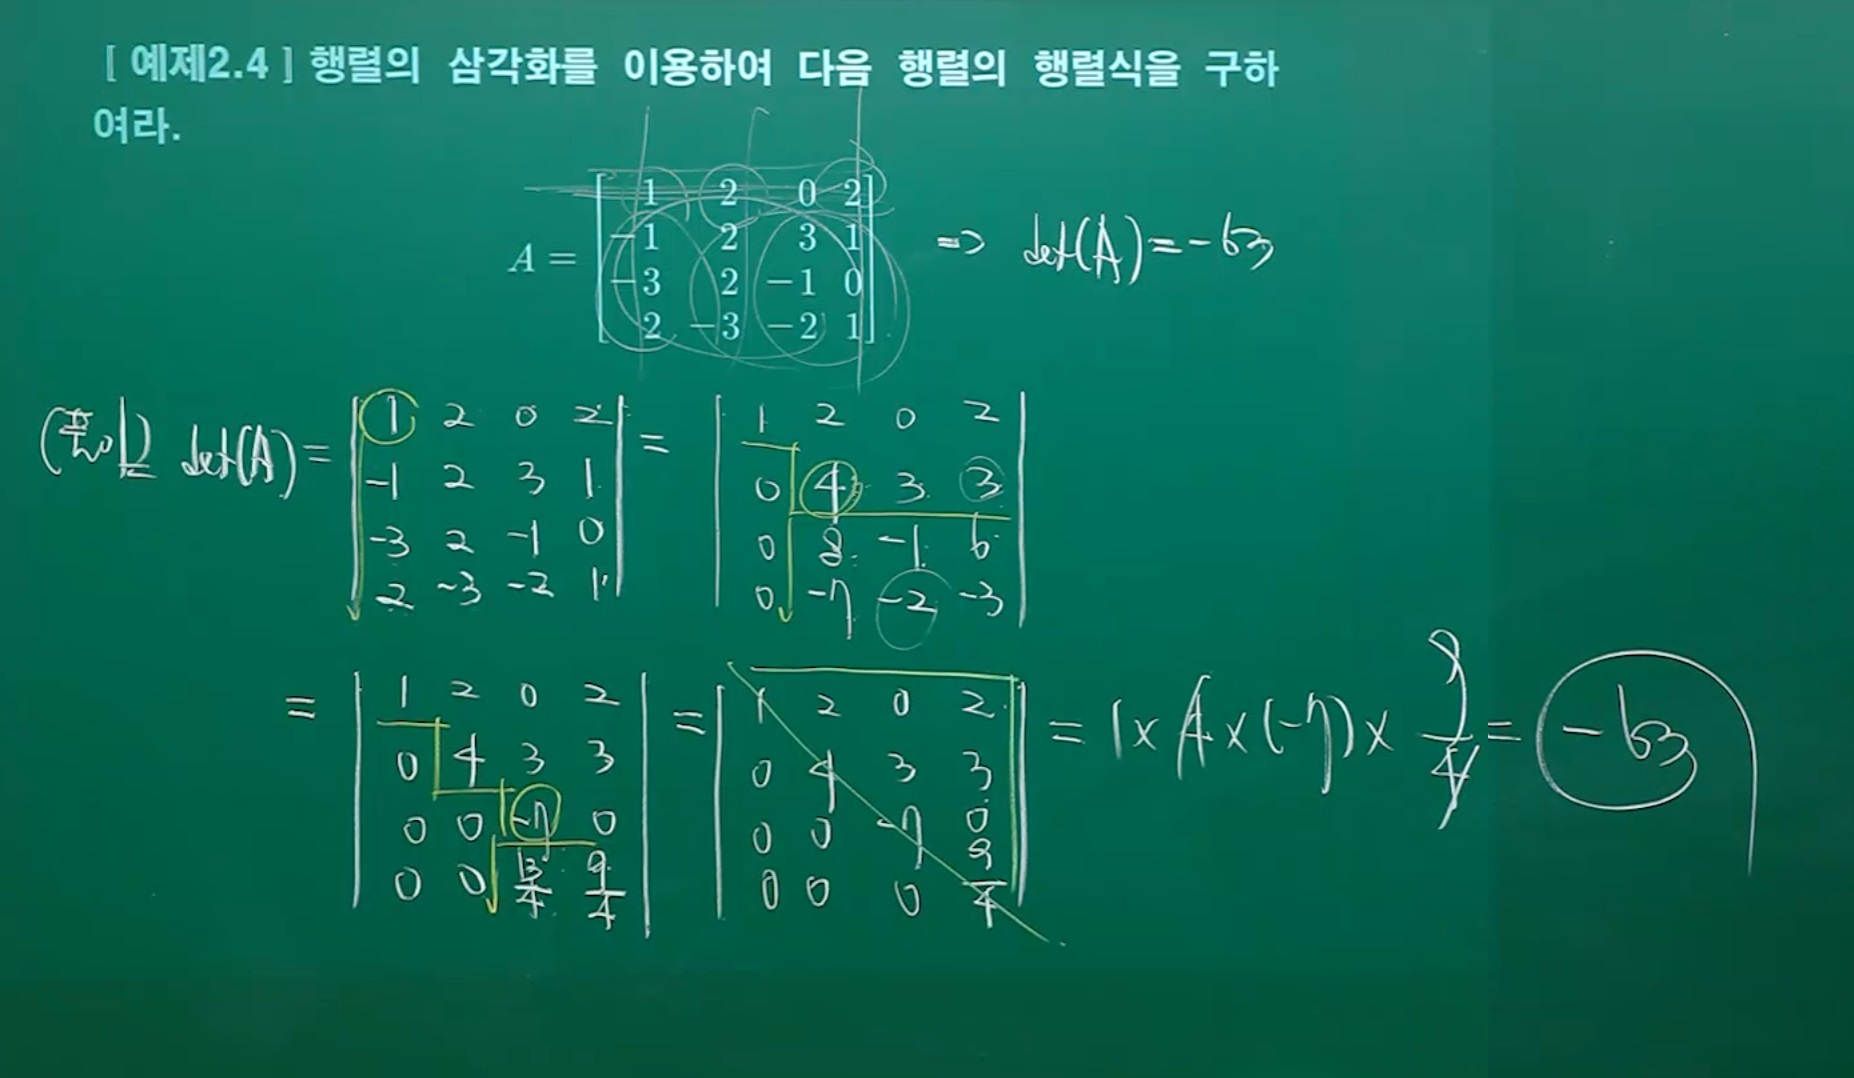 [ 예제2.4 ] 행렬의 삼각화를 이용하여 다음 행렬의 행렬식을 구하
여라.
1 2 0 2
-1 2 3 1
A =
-3 2 -1 0
2 -3 -2 1
=> det(A) = -63
(풀이) det(A) =
1 2 0 2
-1 2 3 1
-3 2 -1 0
2 -3 -2 1
=
1 2 0 2
0 4 3 3
0 8 -1 6
0 -7 -2 -3
=
1 2 0 2
0 4 3 3
0 0 -7 0
0 0 13/4 9/4
=
1 2 0 2
0 4 3 3
0 0 -7 0
0 0 0 9/4
= 1 x 4 x (-7) x 9/4 = -63